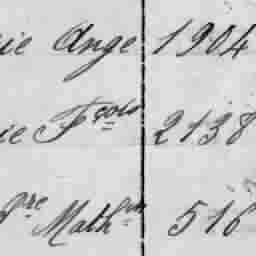 ie Ange 1904
ie Fçois 2138
Pre Mathin 516